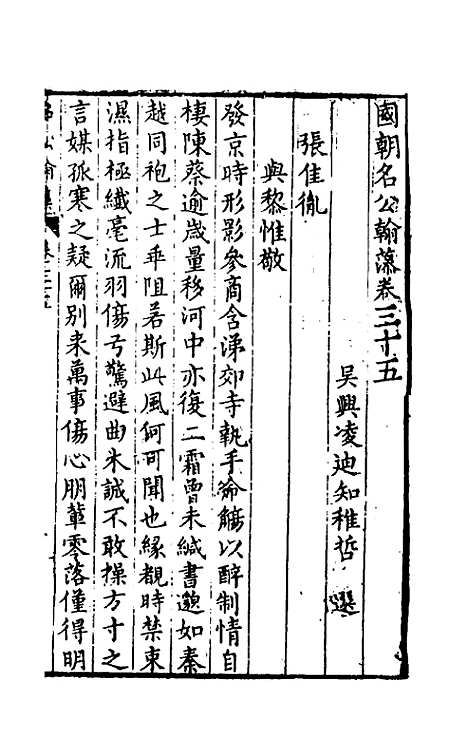 國朝名公翰藻卷三十五
吳興凌迪知稚哲 選
張佳胤
與黎惟敬
發京時形影參商含涕郊寺執手分觴以醉制情自
棲陳蔡逾歲量移河中亦復二霜曾未緘書邈如秦
越同袍之士乖阻若斯此風何可聞也緣覩時禁束
濕指極纖毫流羽傷弓驚避曲木誠不敢操方寸之
言媒孤寒之疑爾別来萬事傷心朋輩零落僅得明